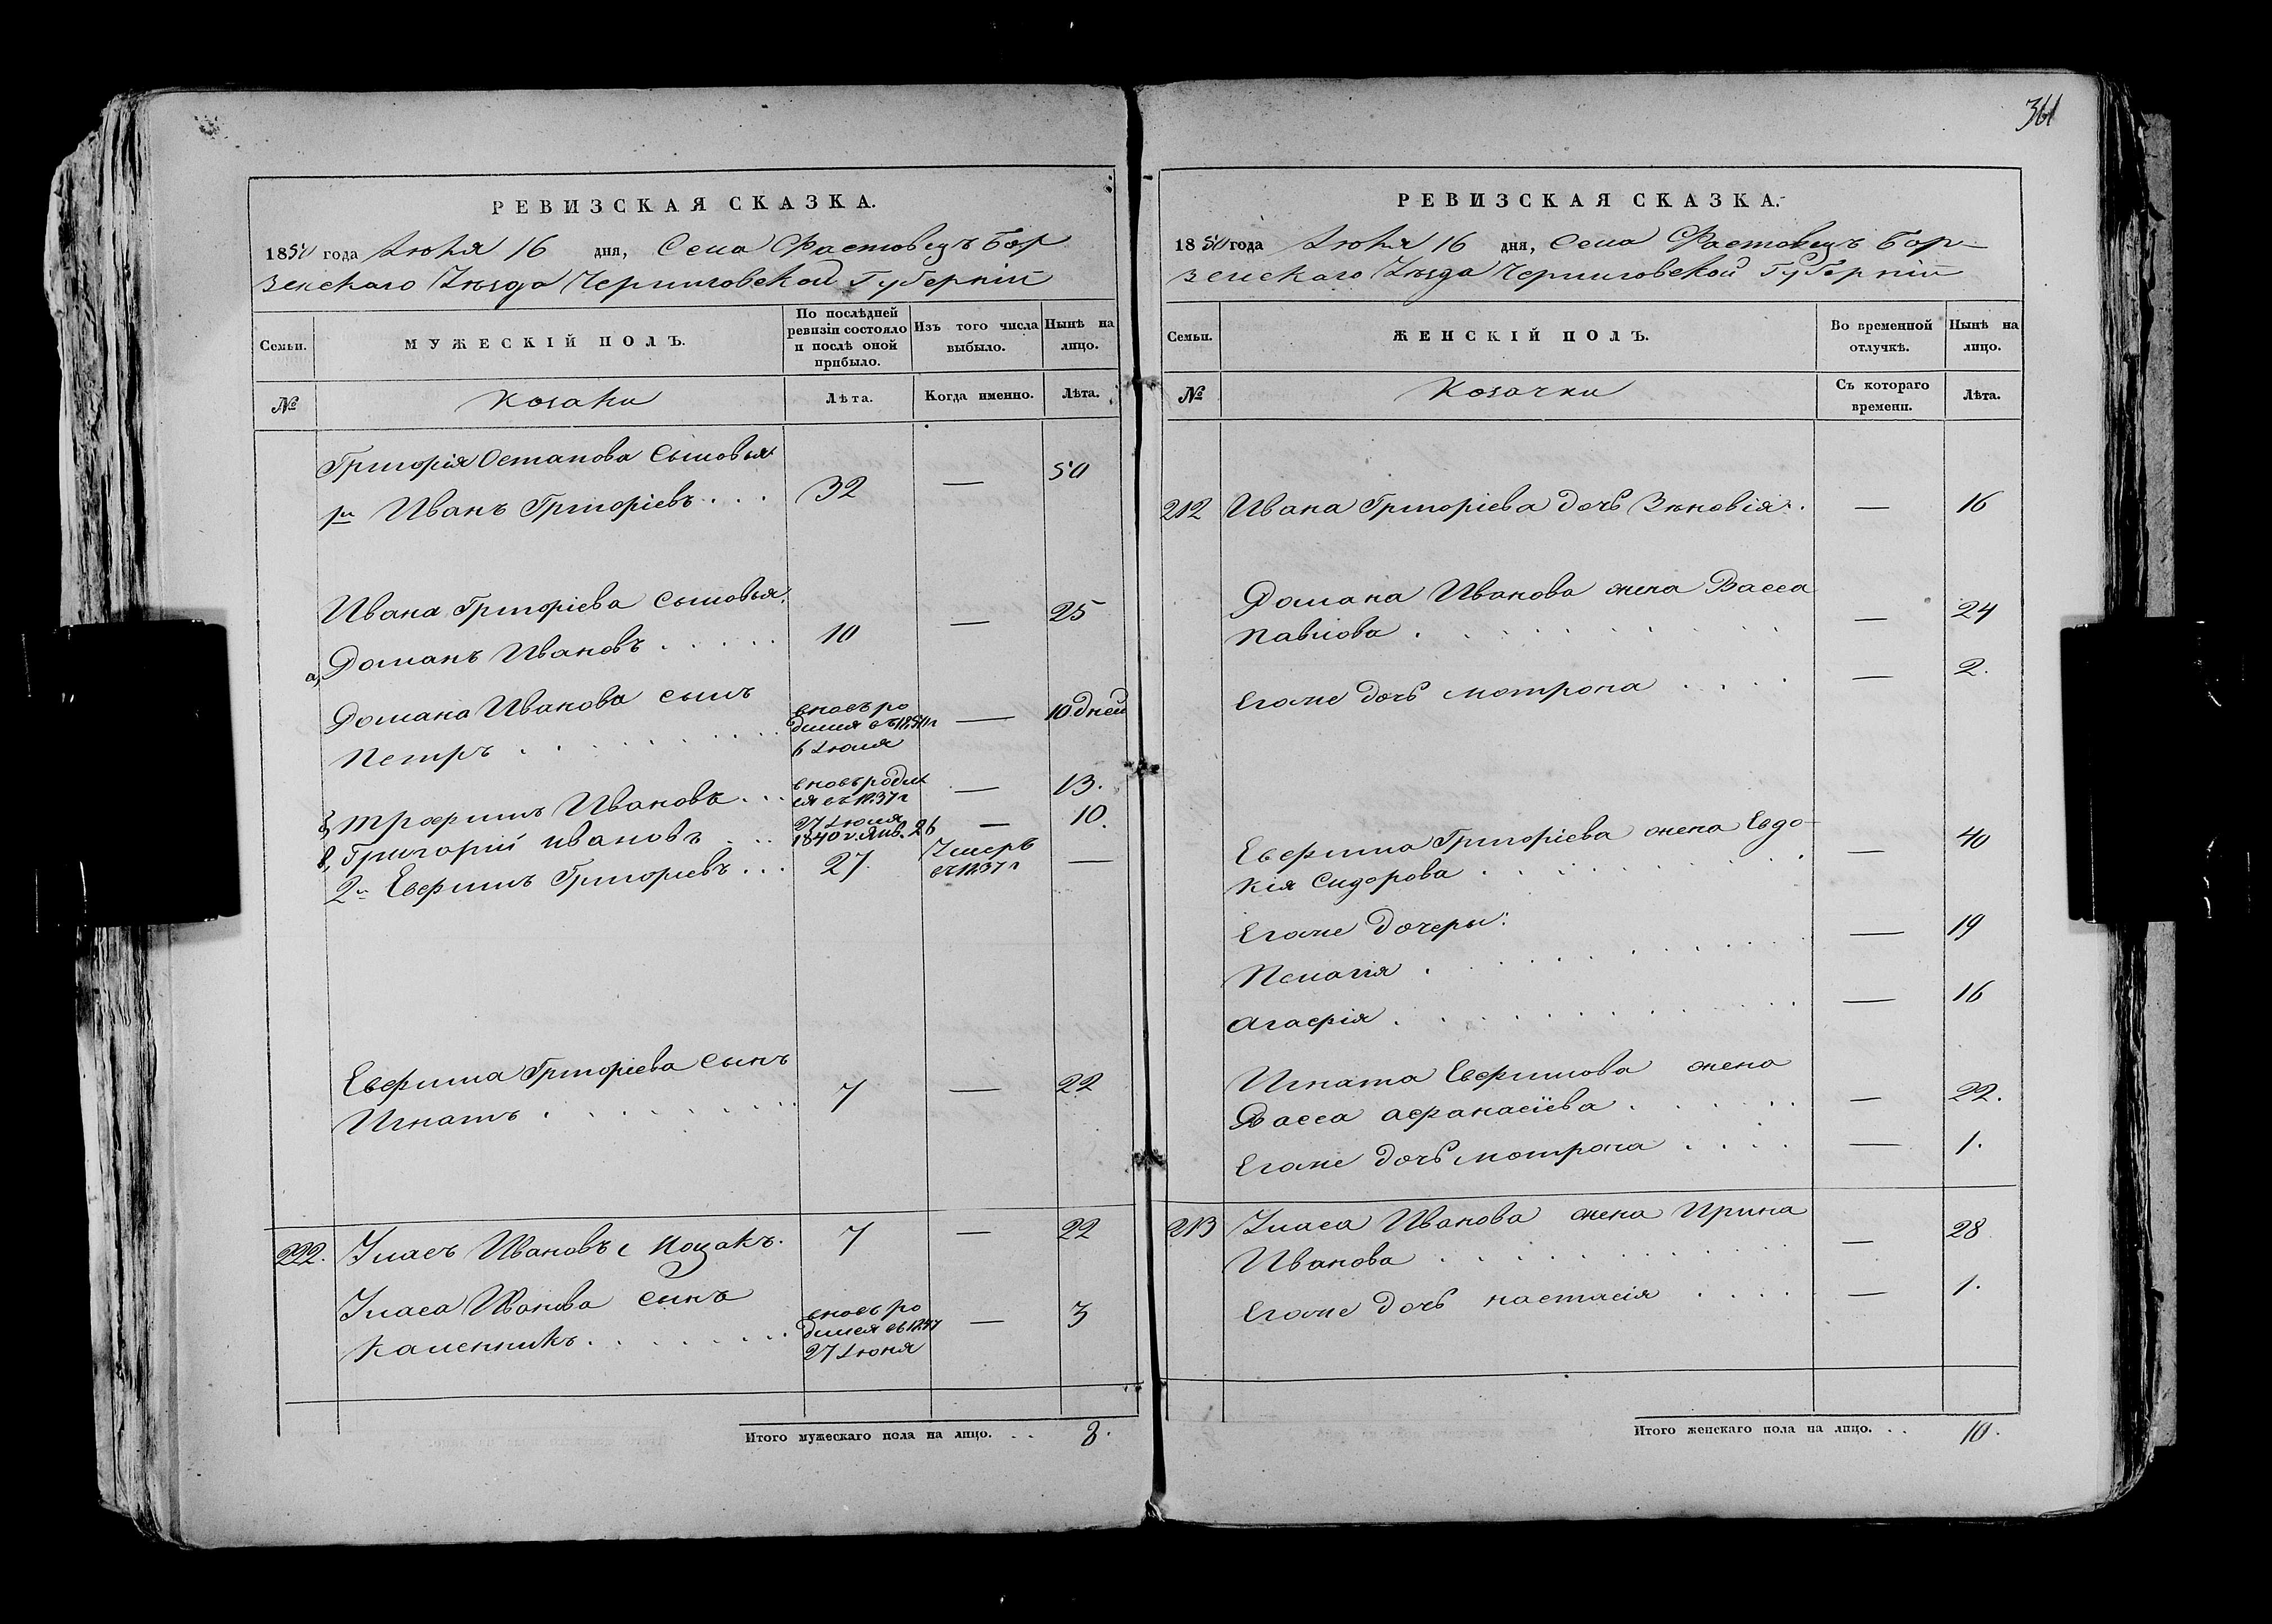 361
РЕВИЗСКАЯ СКАЗКА.
1850 года Июля 16 дня, Села Фастовецъ Бор
зенскаго Уѣзда Черниговской Губерніи
Семьи.
МУЖЕСКІЙ ПОЛЪ.
По послѣдней ревизіи состояло и послѣ оной прибыло.
Изъ того числа выбыло.
Нынѣ на лицо.
№
Козаки
Лѣта.
Когда именно.
Лѣта.
Григорія Остапова сыновья
1й Иванъ Григоріевъ 32 — 50
Ивана Григоріева сыновья
а, Доманъ Ивановъ 10 — 25
Домана Иванова сынъ
Петръ вновь ро
дился съ 1850 г
6 Июля — 10 дней
Трофимъ Ивановъ вновь родил
ся съ 1837 г
27 Июля — 13.
Григорій Ивановъ 1840 г. Янв. 26 — 10.
2й Евфимъ Григоріевъ 27 Умеръ
съ 1837 г —
Евфима Григоріева сынъ
Игнатъ 7 — 22
222. Уласъ Ивановъ Козакъ. 7 — 22
Уласа Иванова сынъ
Каленникъ вновь ро
дился съ 1847
27 Июня — 3
Итого мужескаго пола на лицо. 8.
РЕВИЗСКАЯ СКАЗКА.
1850 года Июля 16 дня, Села Фастовецъ Бор-
зенскаго Уѣзда Черниговской Губерніи
Семьи.
ЖЕНСКІЙ ПОЛЪ.
Во временной отлучкѣ.
Нынѣ на лицо.
№
Козачки
Съ котораго времени.
Лѣта.
212 Ивана Григоріева дочь Зѣновія — 16
Домана Иванова жена Васса
Павлова — 24
Егоже дочь Мотрона — 2.
Евфима Григоріева жена Евдо-
кія Сидорова — 40
Егоже дочери:
Пелагія — 19
Агафія — 16
Игната Евфимова жена
Васса Афанасіева — 22.
Егоже дочь Мотрона — 1.
213 Уласа Иванова жена Ирина
Иванова — 28
Егоже дочь Настасія — 1.
Итого женскаго пола на лицо. 10.